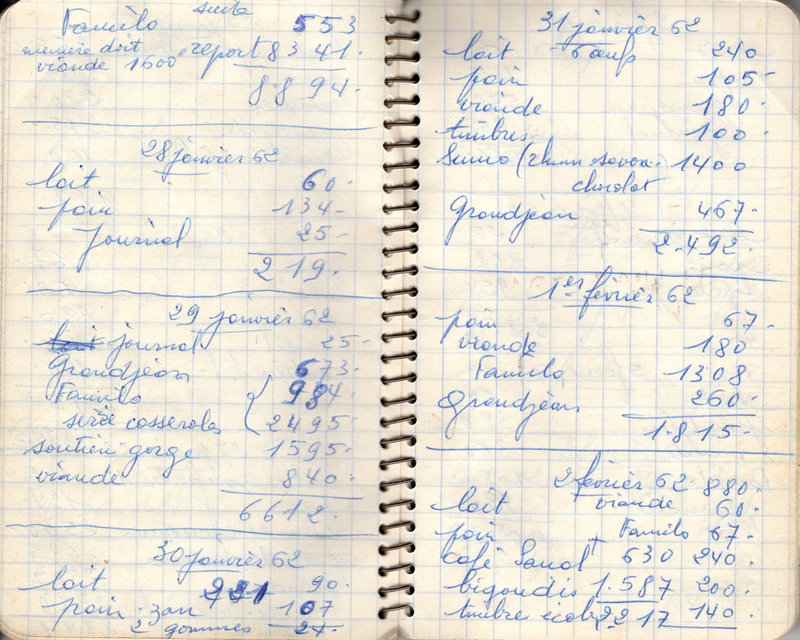 suite
Familo 553
memère doit report 8341.
viande 1600
8.894.
28 janvier 62
lait 60.
pain 134.
journal 25.
219.
29 janvier 62
journal 25.
Grandjean 673.
Familo 984
série casseroles 2495.
soutien-gorge 1595.
viande 840.
6612.
30 janvier 62
lait 90.
pain zan 107
2 gommes 24.
31 janvier 62
lait 240
pain 105
viande 180.
timbres 100.
savon 1400
chocolat
Grandjean 467.
2.492.
1er février 62
pain 67.
viande 180
Familo 1308
Grandjean 260.
1.815.
2 février 62 880.
lait viande 60.
pain Familo 67.
café 630 240.
bigoudis 1.587 200.
timbres 2217 140.